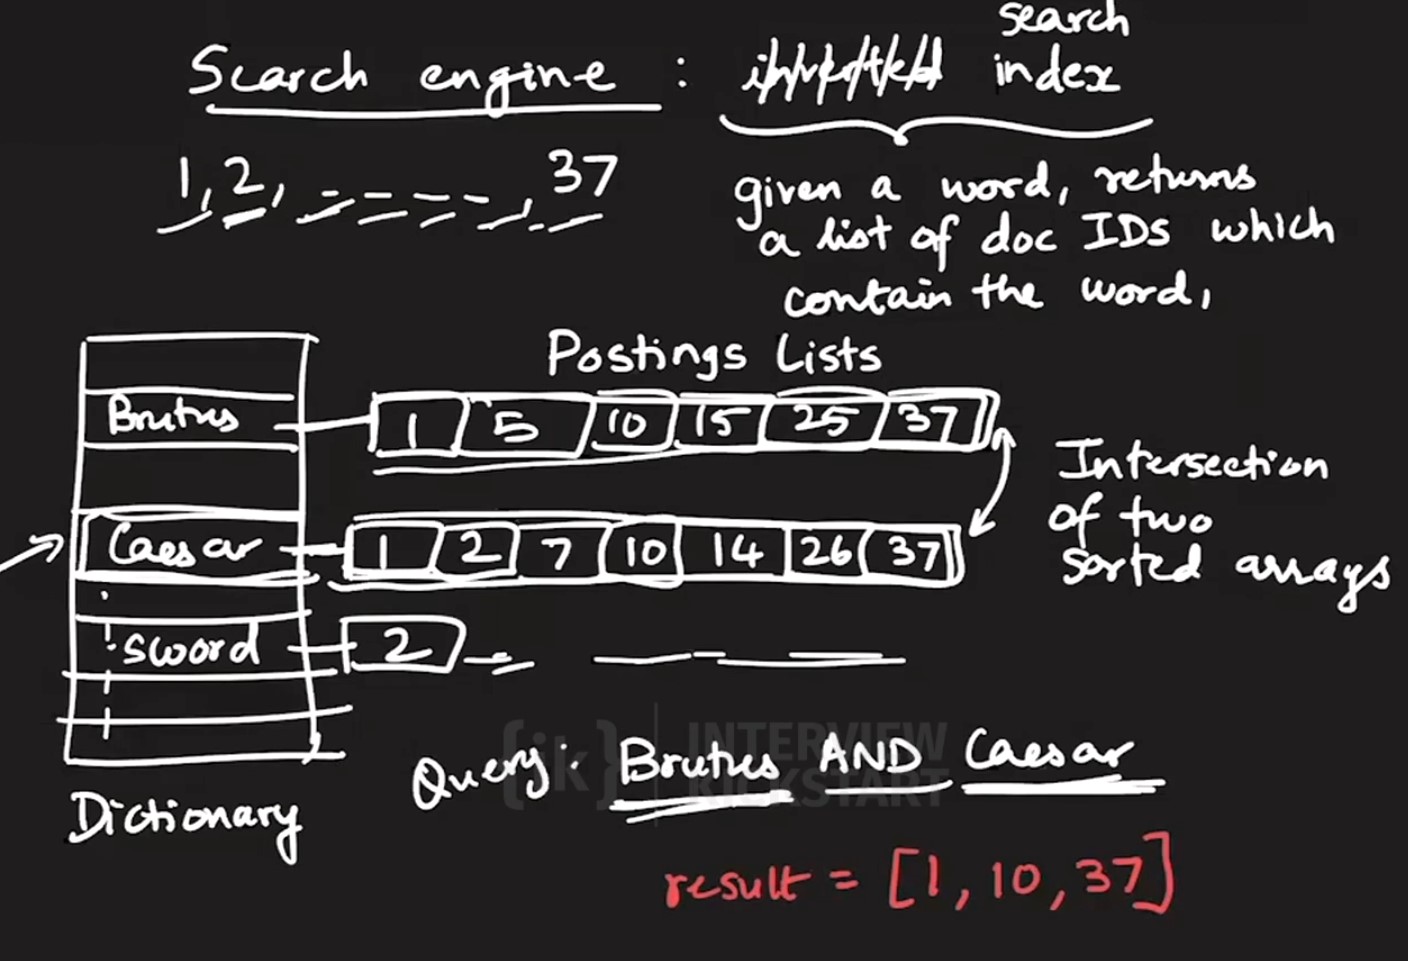 Search engine : inverted search index
1, 2, – – – – –, 37
given a word, returns
a list of doc IDs which
contain the word,
Postings Lists
Brutus 1 5 10 15 25 37
Intersection
of two
sorted arrays
Caesar 1 2 7 10 14 26 37
sword 2
{ik} INTERVIEW KICKSTART
Query: Brutus AND Caesar
Dictionary
result = [1, 10, 37]